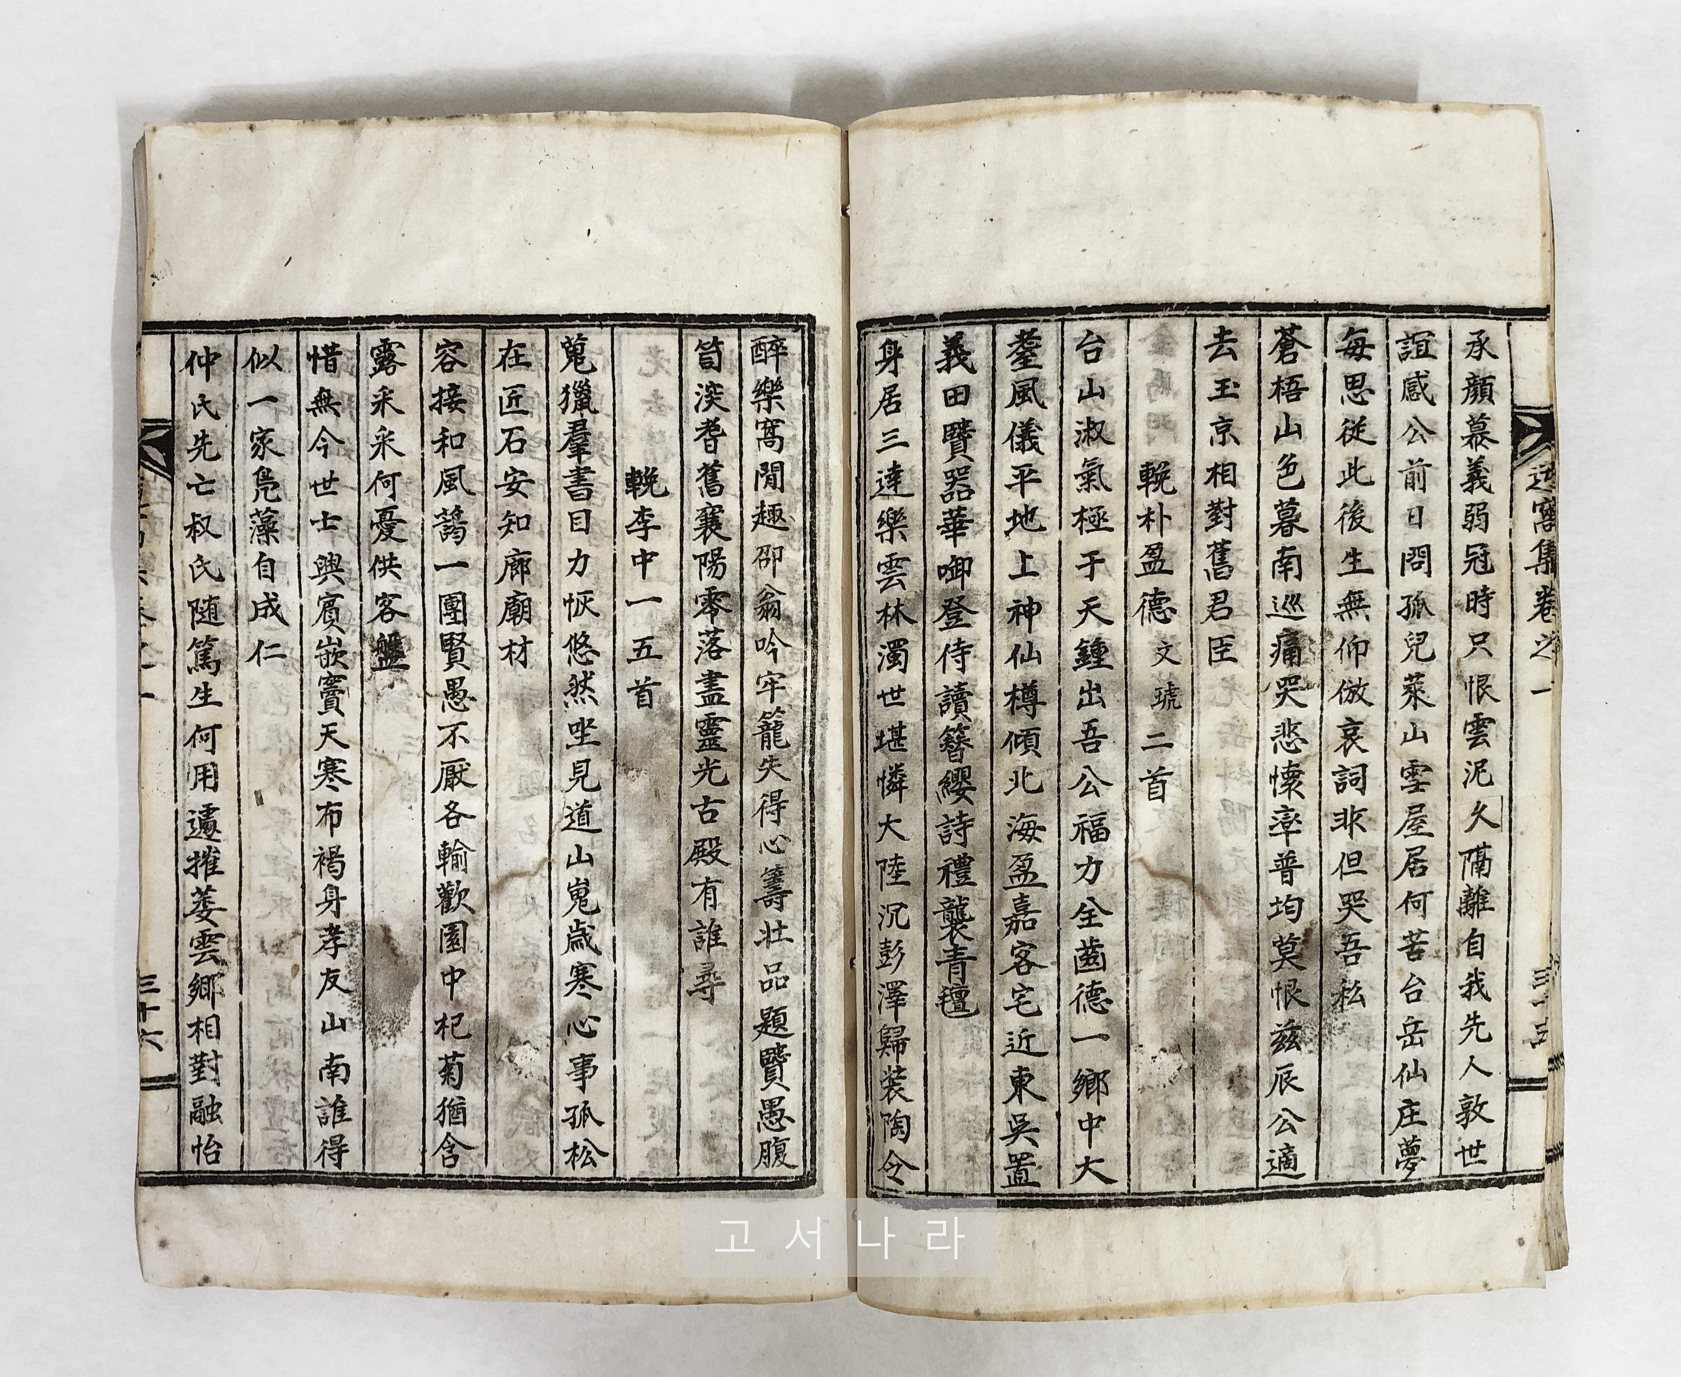 窩集卷之一
承顔慕義弱冠時只恨雲泥久隔離自我先人敦世
誼感公前日問孤兒萊山雪屋居何苦台岳仙庄夢
每思從此後生無仰倣哀詞非但哭吾私
蒼梧山色暮南巡痛哭悲懷率普均莫恨玆辰公適
去玉京相對舊君臣
輓朴盈德文琥二首
台山淑氣極于天鍾出吾公福力全齒德一鄕中大
耋風儀平地上神仙樽傾北海盈嘉客宅近東吳置
義田賢器華啣登侍讀簪纓詩禮襲青氊
身居三達樂雲林濁世堪憐大陸沉彭澤歸装陶令
醉樂窩閒趣邵翁吟牢籠失得心籌壯品題賢愚腹
笥深耆舊襄陽零落盡靈光古殿有誰尋
輓李中一五首
蒐獵羣書目力恢悠然坐見道山嵬歲寒心事孤松
在匠石安知廊廟材
容接和風藹一團賢愚不厭各輸歡園中杞菊猶含
露采采何憂供客盤
惜無今世士興賓嵌竇天寒布褐身孝友山南誰得
似一家鳧藻自成仁
仲氏先亡叔氏随篤生何用遽摧萎雲鄕相對融怡
三十六
고서나라